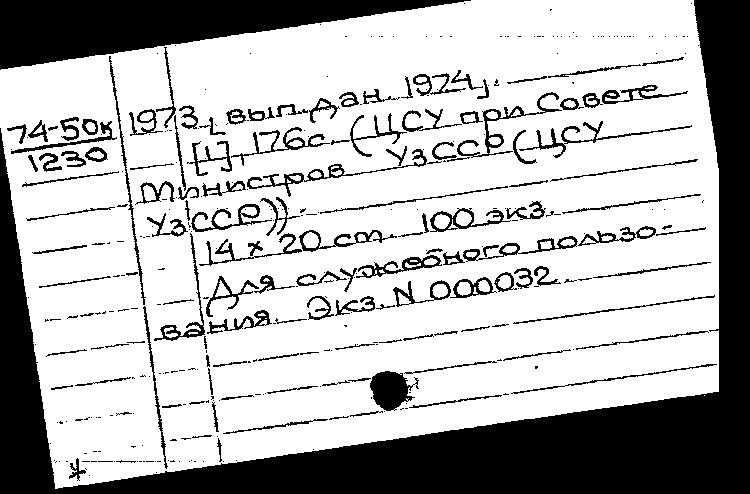 74-50к
1230
1973, [вып. дан. 1974].
[1], 176с. (ЦСУ при Совете
Министров УзССР (ЦСУ
УзССР)).
14 × 20 cm. 100 экз.
Для служебного пользо-
вания. Экз. N 000032.